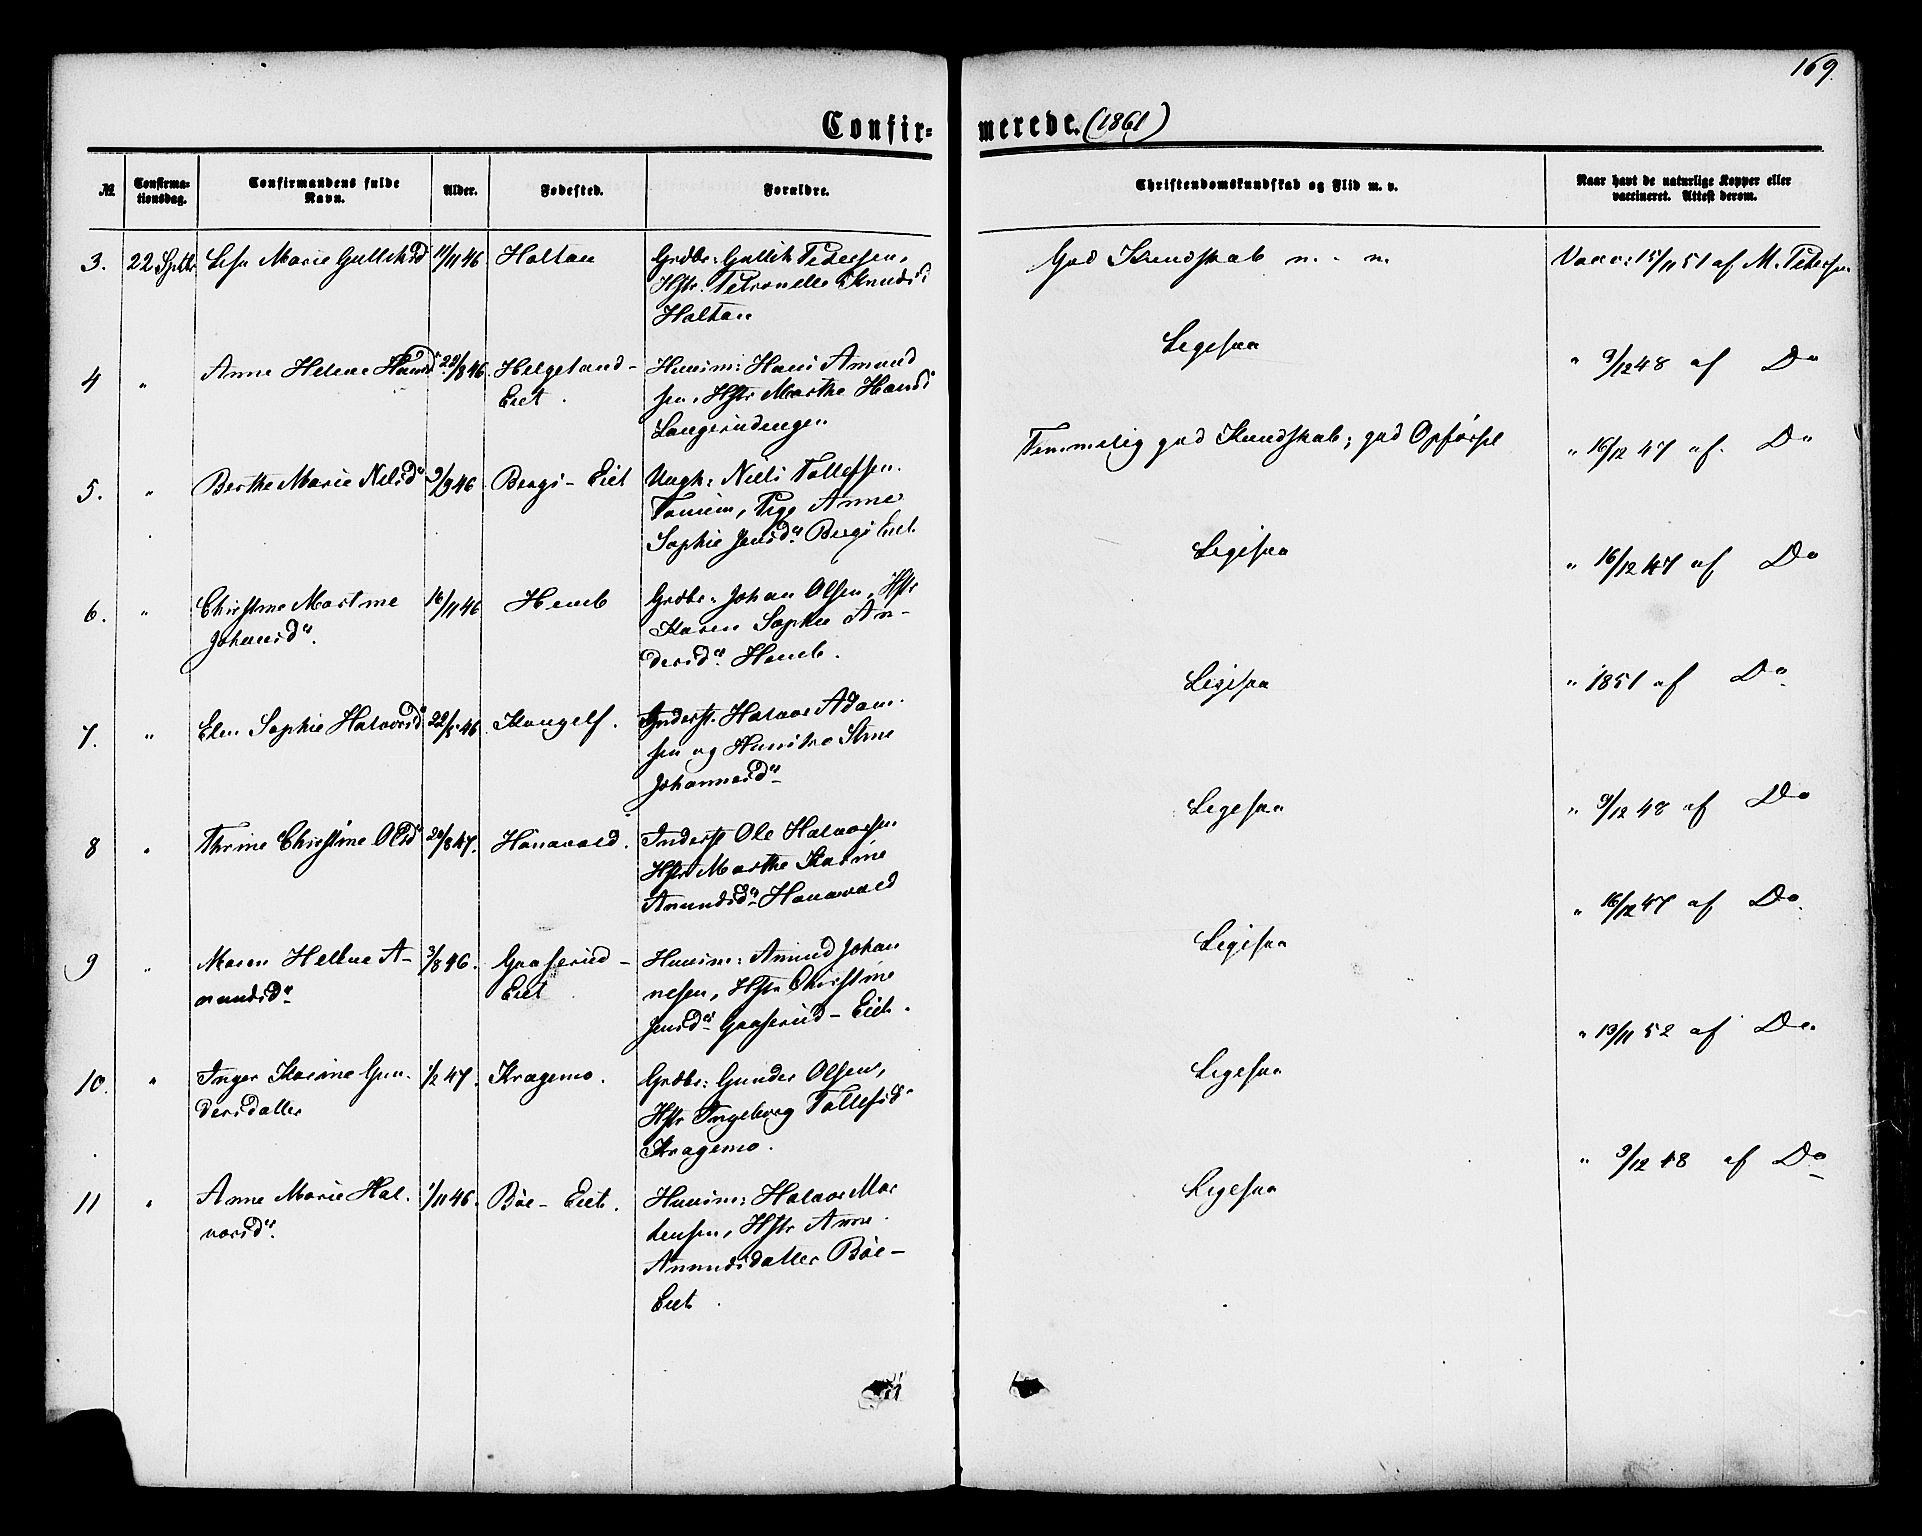 169.
Confir= merede. (1861)
№ Confirma=
tionsdag. Confirmandens fulde
Navn. Alder. Fødested. Forældre. Christendomskundskab og Flid m. v. Naar havt de naturlige Kopper eller
vaccineret. Attest derom.
3. 22 Septbr Marie 11/11 46 Holtan Grdbr: Gullik Petersen, God Kundskab n. - n. Vacc: 15/11 51 af M. Petersen
Hstr. Petronelle Knudsd
Holtan
4 " Anne Helene Hansd 22/8 46 Helgeland- Huusm: Hans Amund Ligesaa " 9/12 48 af Do
Eiet. sen, Hstr Marthe Hansd
5. " Berthe Marie Nilsd 9/9 46 Bergs-Eiet Ungk: Niels Tollefsen Temmelig god Kundskab; god Opførsel " 16/12 47 af Do
Pige Anne
Sophie Jensd Bergs Eiet
6. " Christine Martine 16/11 46 Grdbr: Johan Olsen, Hstr Ligesaa " 16/12 47 af Do
Johansd. Karen Sophie An-
dersd
7. " Elen Sophie Halvorsd 22/5 46 Kongelf. Inderst. Halvor Adam- Ligesaa " 1851 af Do
sen og Hustru Stine
Johannesd
8 " Thrine Christine Olsd 20/8 47. Hanavold. Inderst Ole Halvorsen Ligesaa " 9/12 48 af Do
Hstr Marthe Karine
Amundsd Hanavold
9 " Maren Helene A- 3/8 46. Graaserud- Huusm: Amund Johan Ligesaa " 16/12 47 af Do.
mundsd Eiet nesen, Hstr Christine
Jensd Graaserud-Eiet.
10. " Inger Karine Gun- 1/2 47. Kragemo. Grdbr: Gunder Olsen, Ligesaa " 13/11 52 af Do.
dersdatter Hstr Ingeborg Tollefsd
Kragemo.
11 " Anne Marie Hal- 1/11 46. Bøe-Eiet. Huusm: Halvor Mor Ligesaa " 9/12 48 af Do
vorsd. tensen, Hstr Anne
Amundsdatter Bøe-
Eiet.